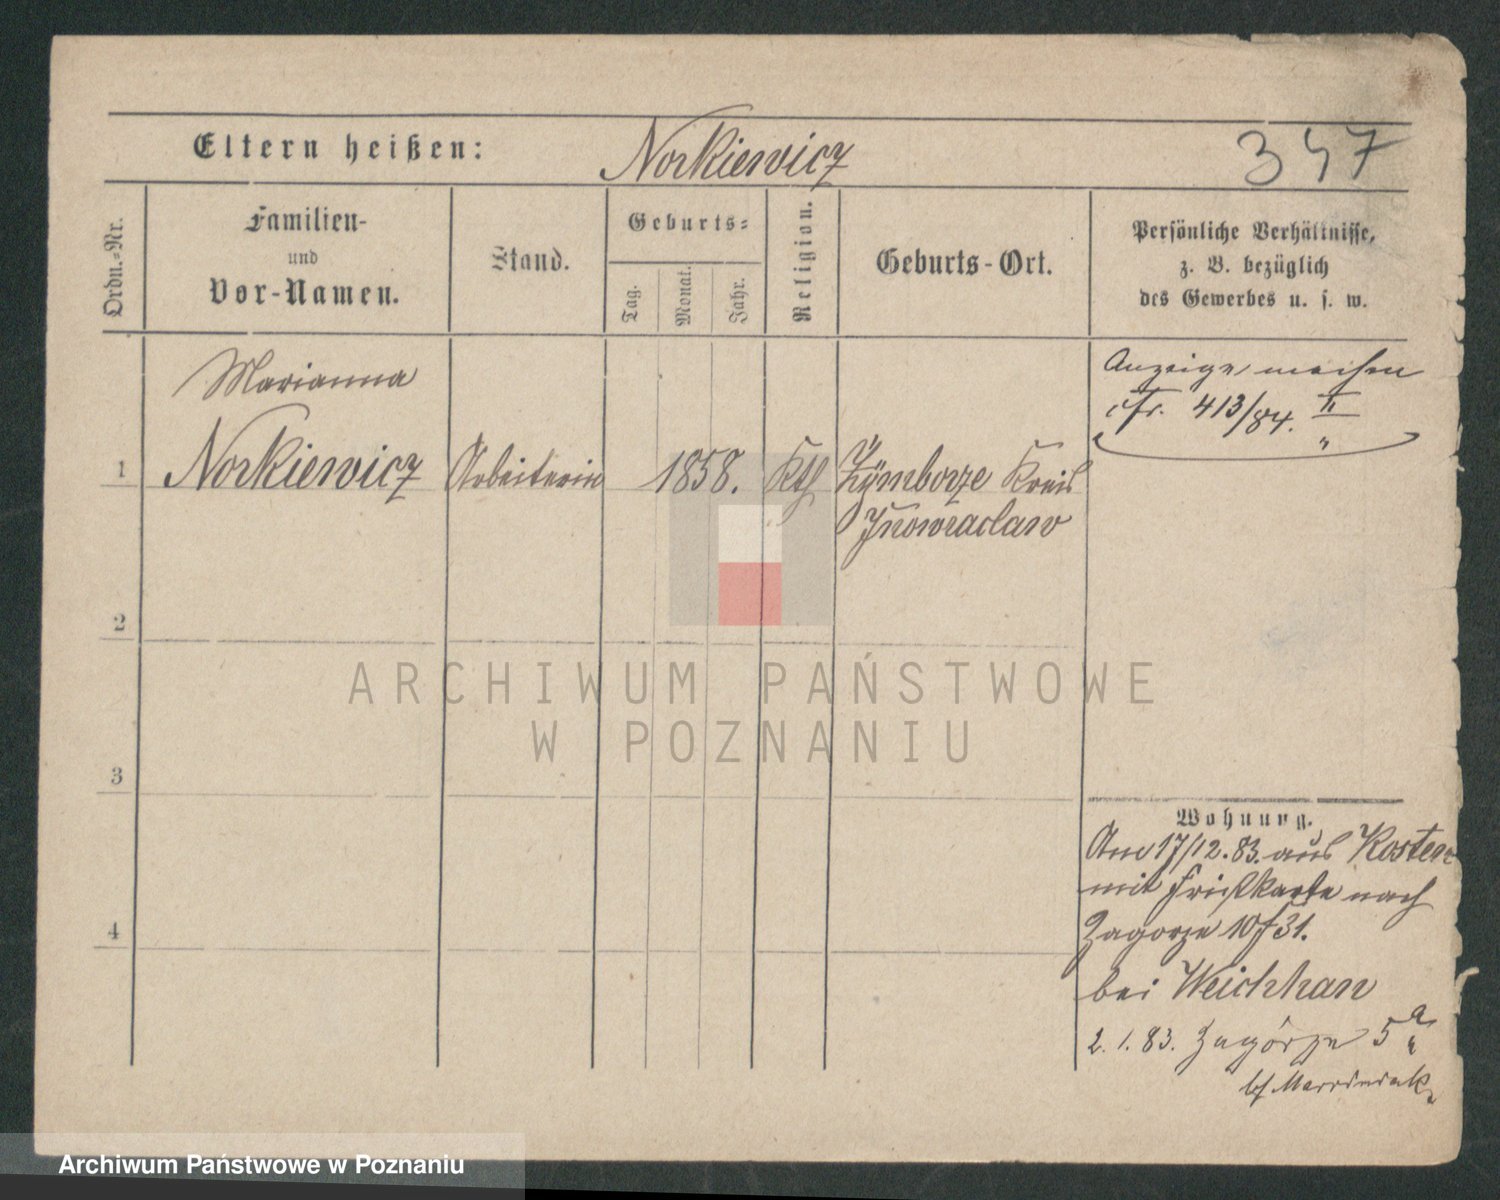 Eltern heißen: Norkiewicz 347
Ordn.-Nr.
Familien-
und
Vor-Namen.
Stand.
Geburts-
Tag.
Monat.
Jahr.
Religion.
Geburts-Ort.
Persönliche Verhältnisse,
z. B. bezüglich
des Gewerbes u. s. w.
Marianna
1 Norkiewicz Arbeiterin 1858. Kth Zÿmborze Kreis
Inowraclaw
Anzeige machen
cfr. 413/84. II
2
3
4
Wohnung.
Am 17/12.83. aus Kosten
mit nach
Zagorze 10/31.
bei Weichhan
2. 1. 83. Zagórze 5a
ARCHIWUM PAŃSTWOWE
W POZNANIU
Archiwum Państwowe w Poznaniu